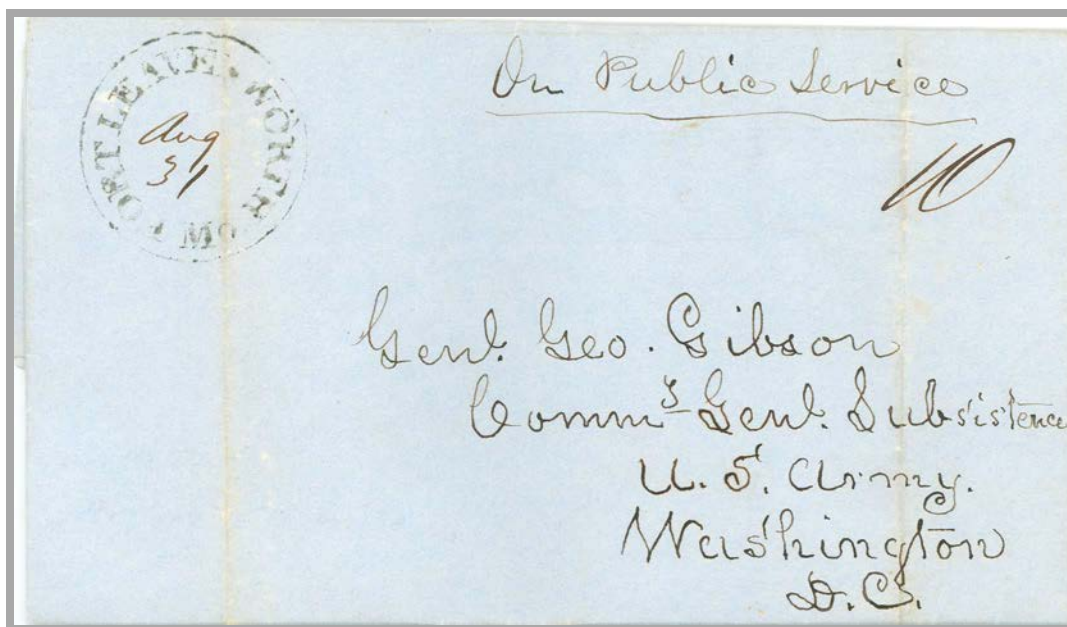 FORT LEAVENWORTH Mo
Aug
31
On Public Service
10
Genl. Geo. Gibson
Commy Genl. Subsistence
U. S. Army.
Washington
D.C.